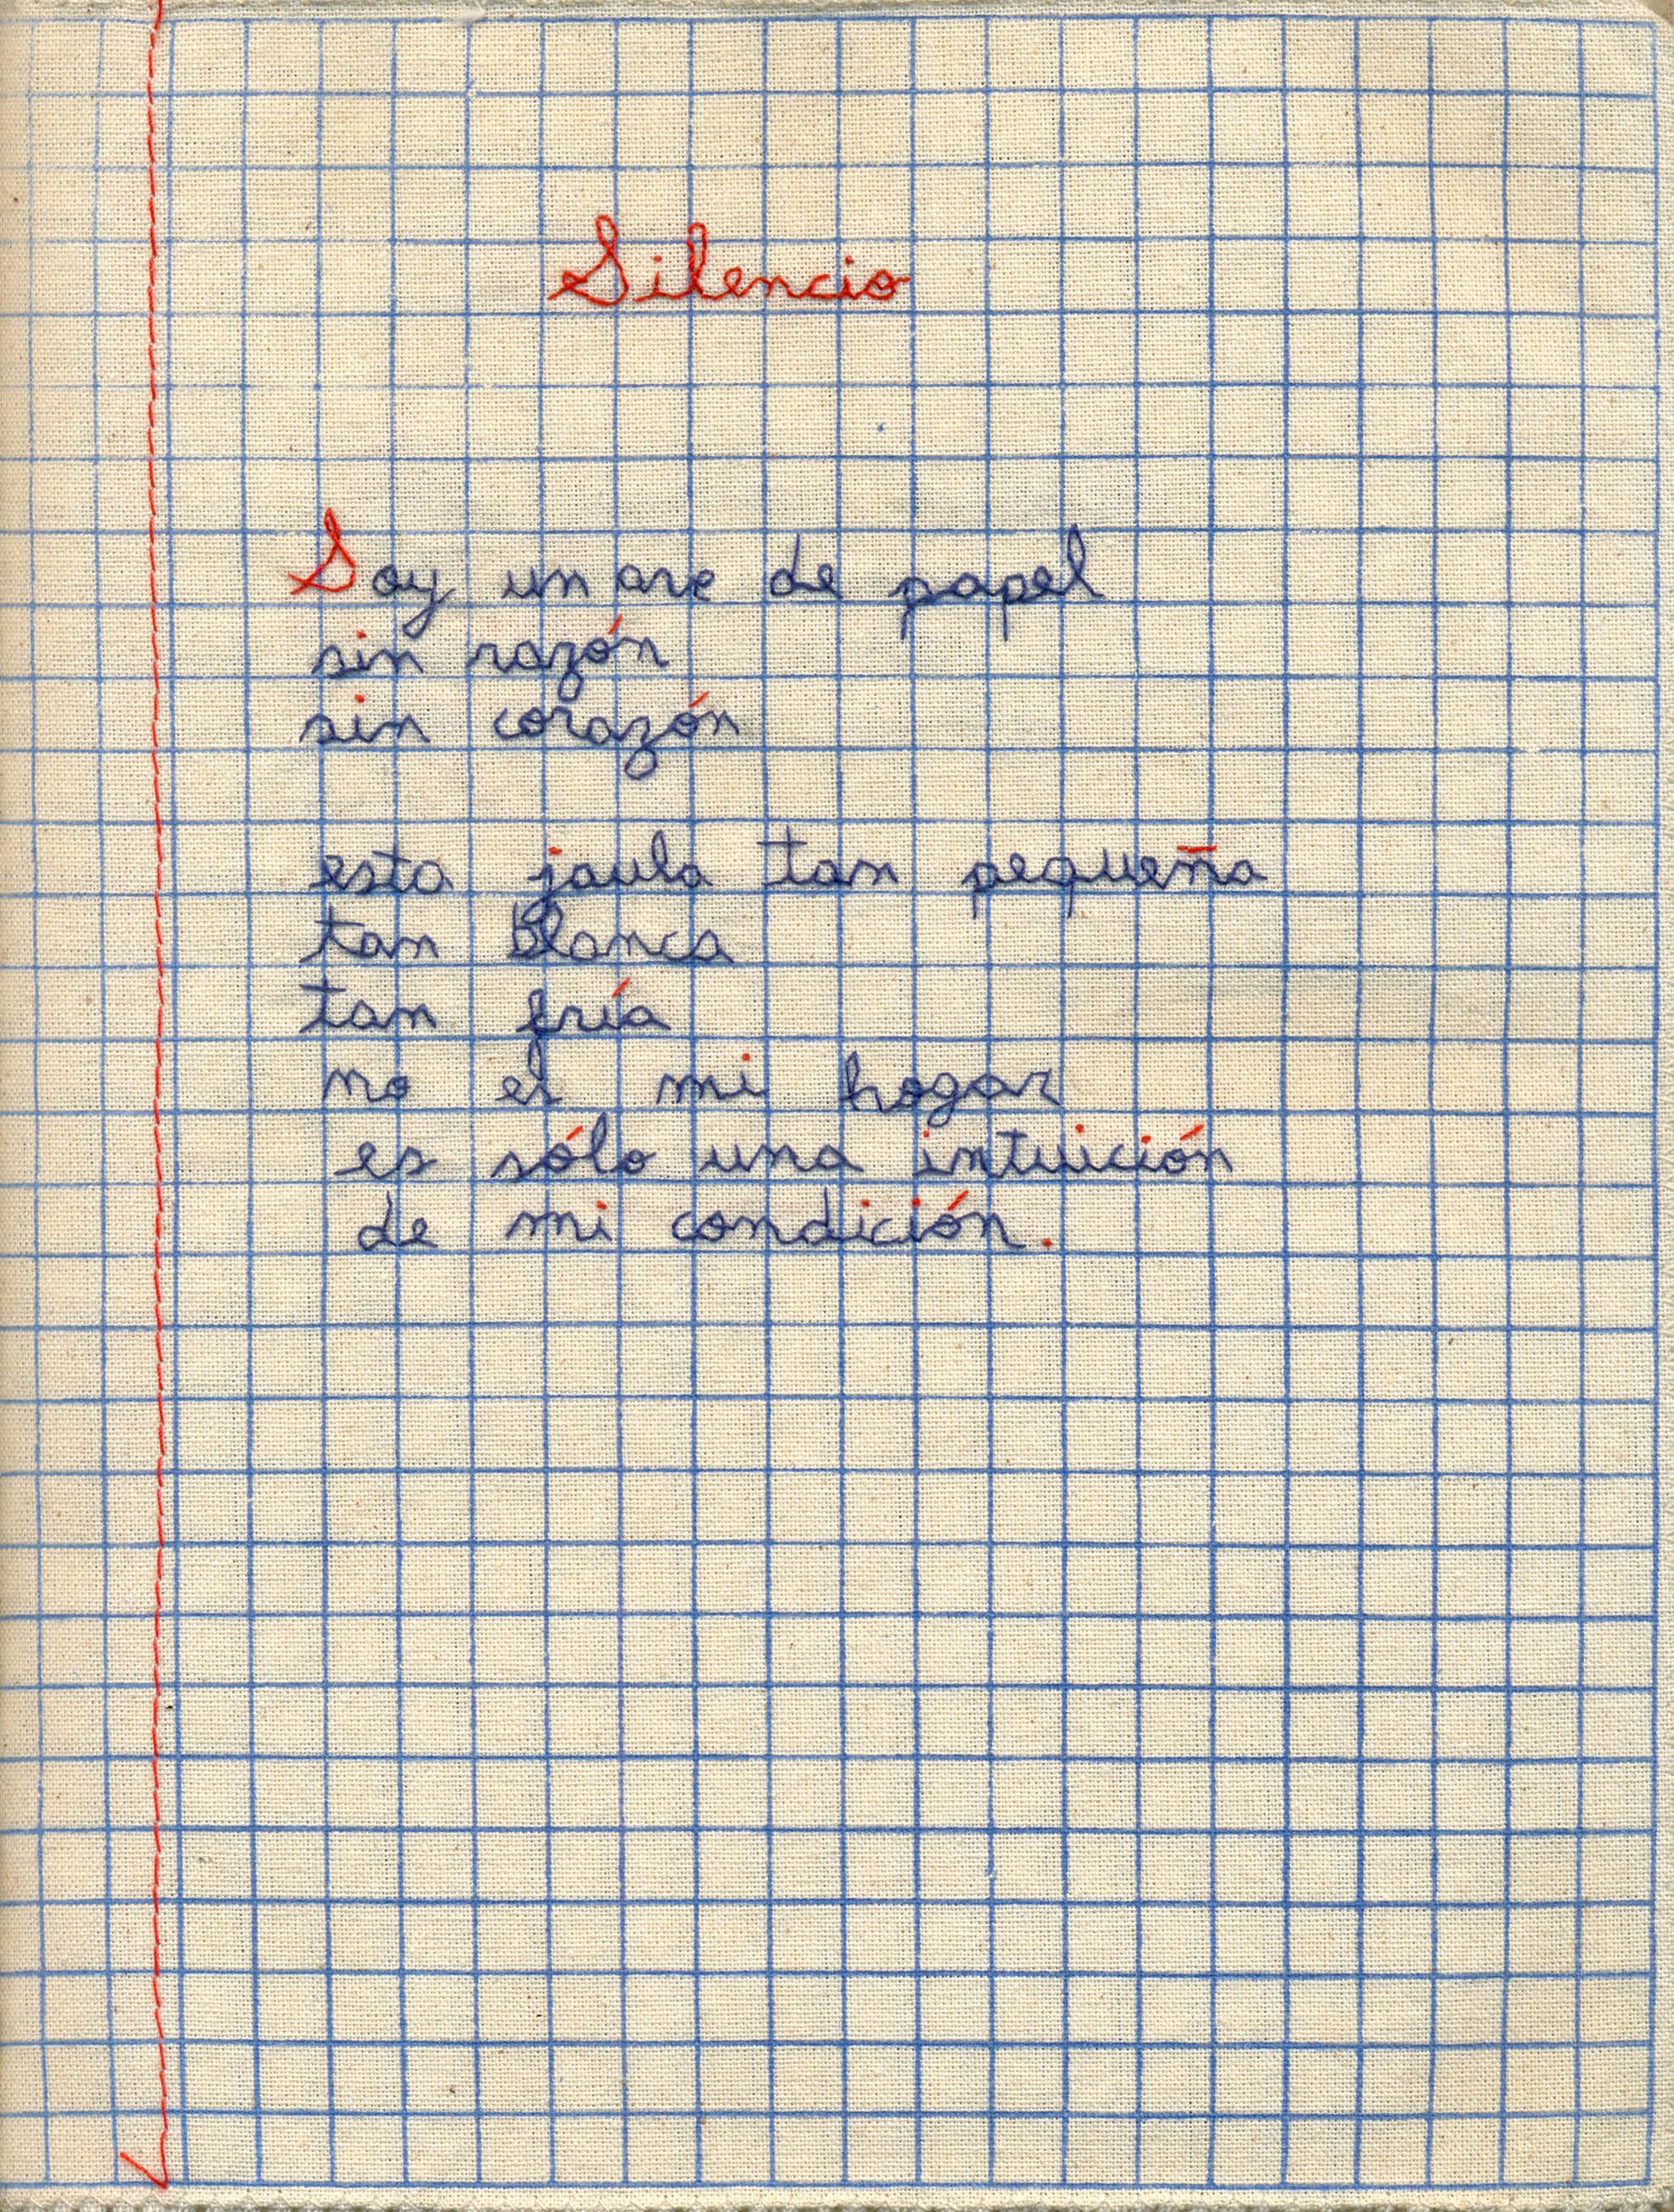 Silencio
Soy un ave de papel
sin razón
sin corazón
esta jaula tan pequeña
tan blanca
tan fría
no es mi hogar
es sólo una intuición
de mi condición.